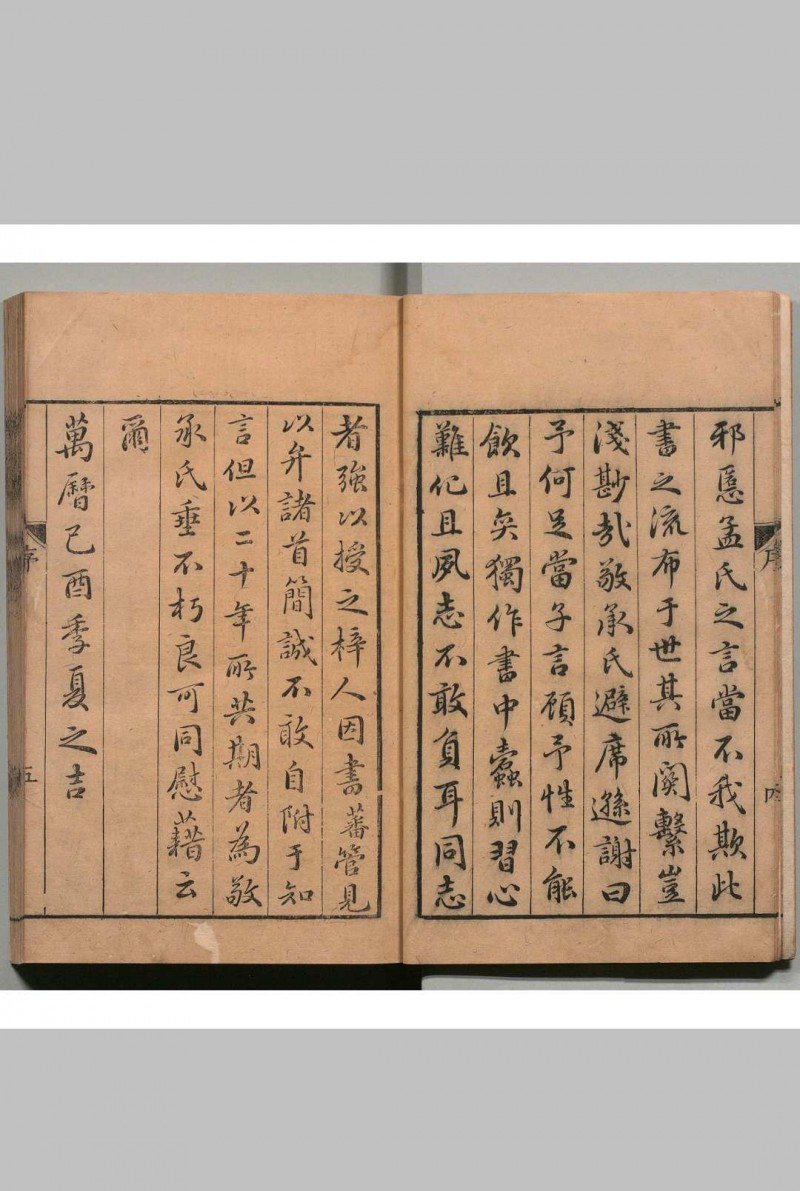 邪恳孟氏之言當不我欺此
書之流布于世其所関繫豈
淺尠哉敬承氏避席遜謝曰
予何足當子言顧予性不能
飲且奕獨作書中蠹則習心
難化且夙志不敢負耳同志
序
四
者強以授之梓人因書蕃管見
以弁諸首簡誠不敢自附于知
言但以二十年所共期者為敬
承氏垂不朽良可同慰藉云
爾
萬曆己酉季夏之吉
序
五